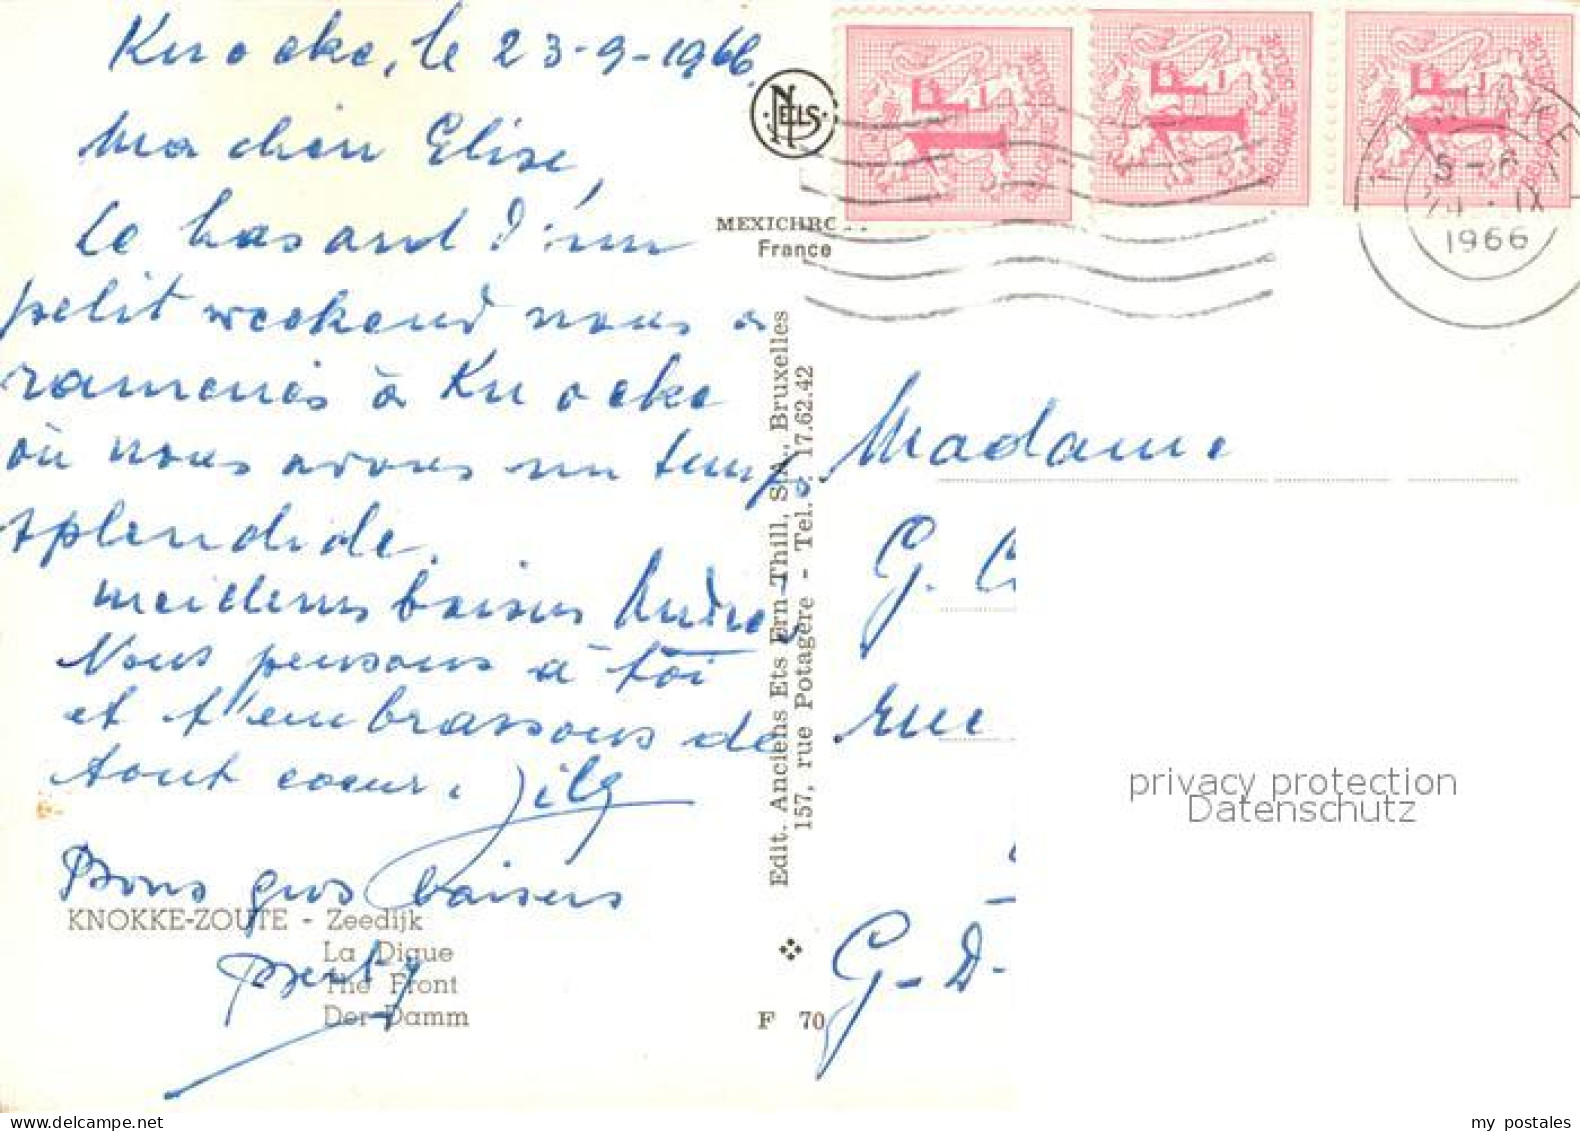 Knocke, le 23-9-1966.
Ma chère Elise,
Le hasard d'un
petit weekend nous a
ramenés à Knocke
où nous avons un temps
splendide.
meilleurs baisers André
Nous pensons à toi
et t'embrassons de
tout coeur.
Bons gros baisers
KNOKKE-ZOUTE - Zeedijk
La Digue
The Front
Der Damm
NELS
MEXICHRO
France
Edit. Anciens Ets Ern-Thill, S.A., Bruxelles
157, rue Potagère - Tel. 17.62.42
F 70
1F
BELGIQUE
1F
BELGIQUE
1F
5-6
24 · IX
1966
Madame
G. C
rue
G-D-
privacy protection
Datenschutz
my postales